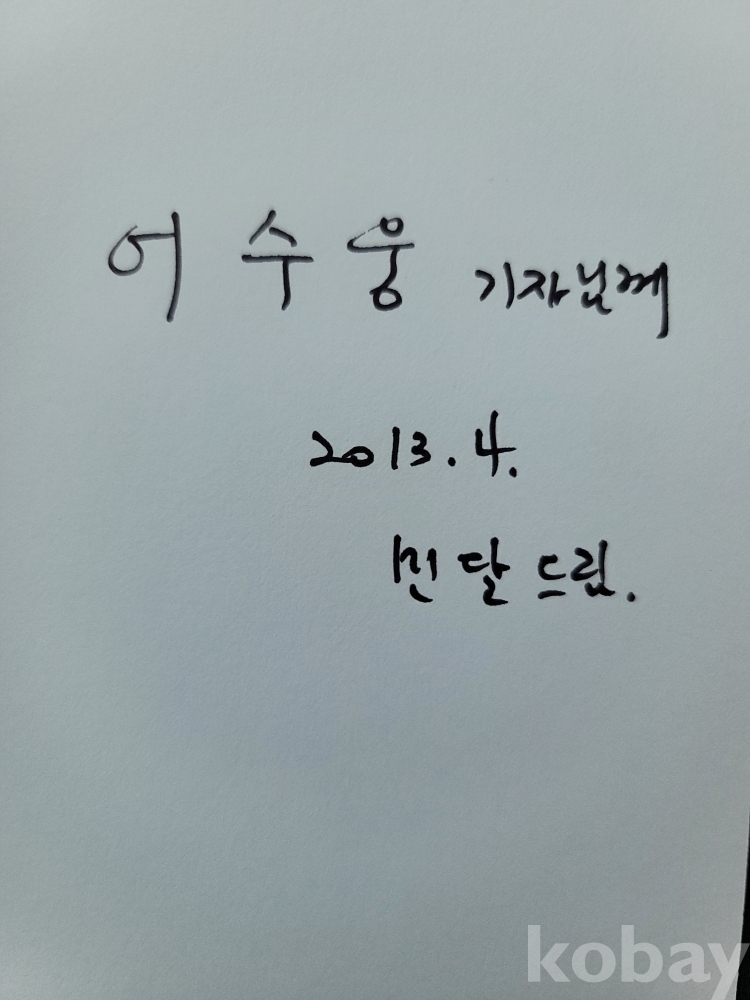 어수웅 기자님께
2013.4.
민달 드림.
kobay